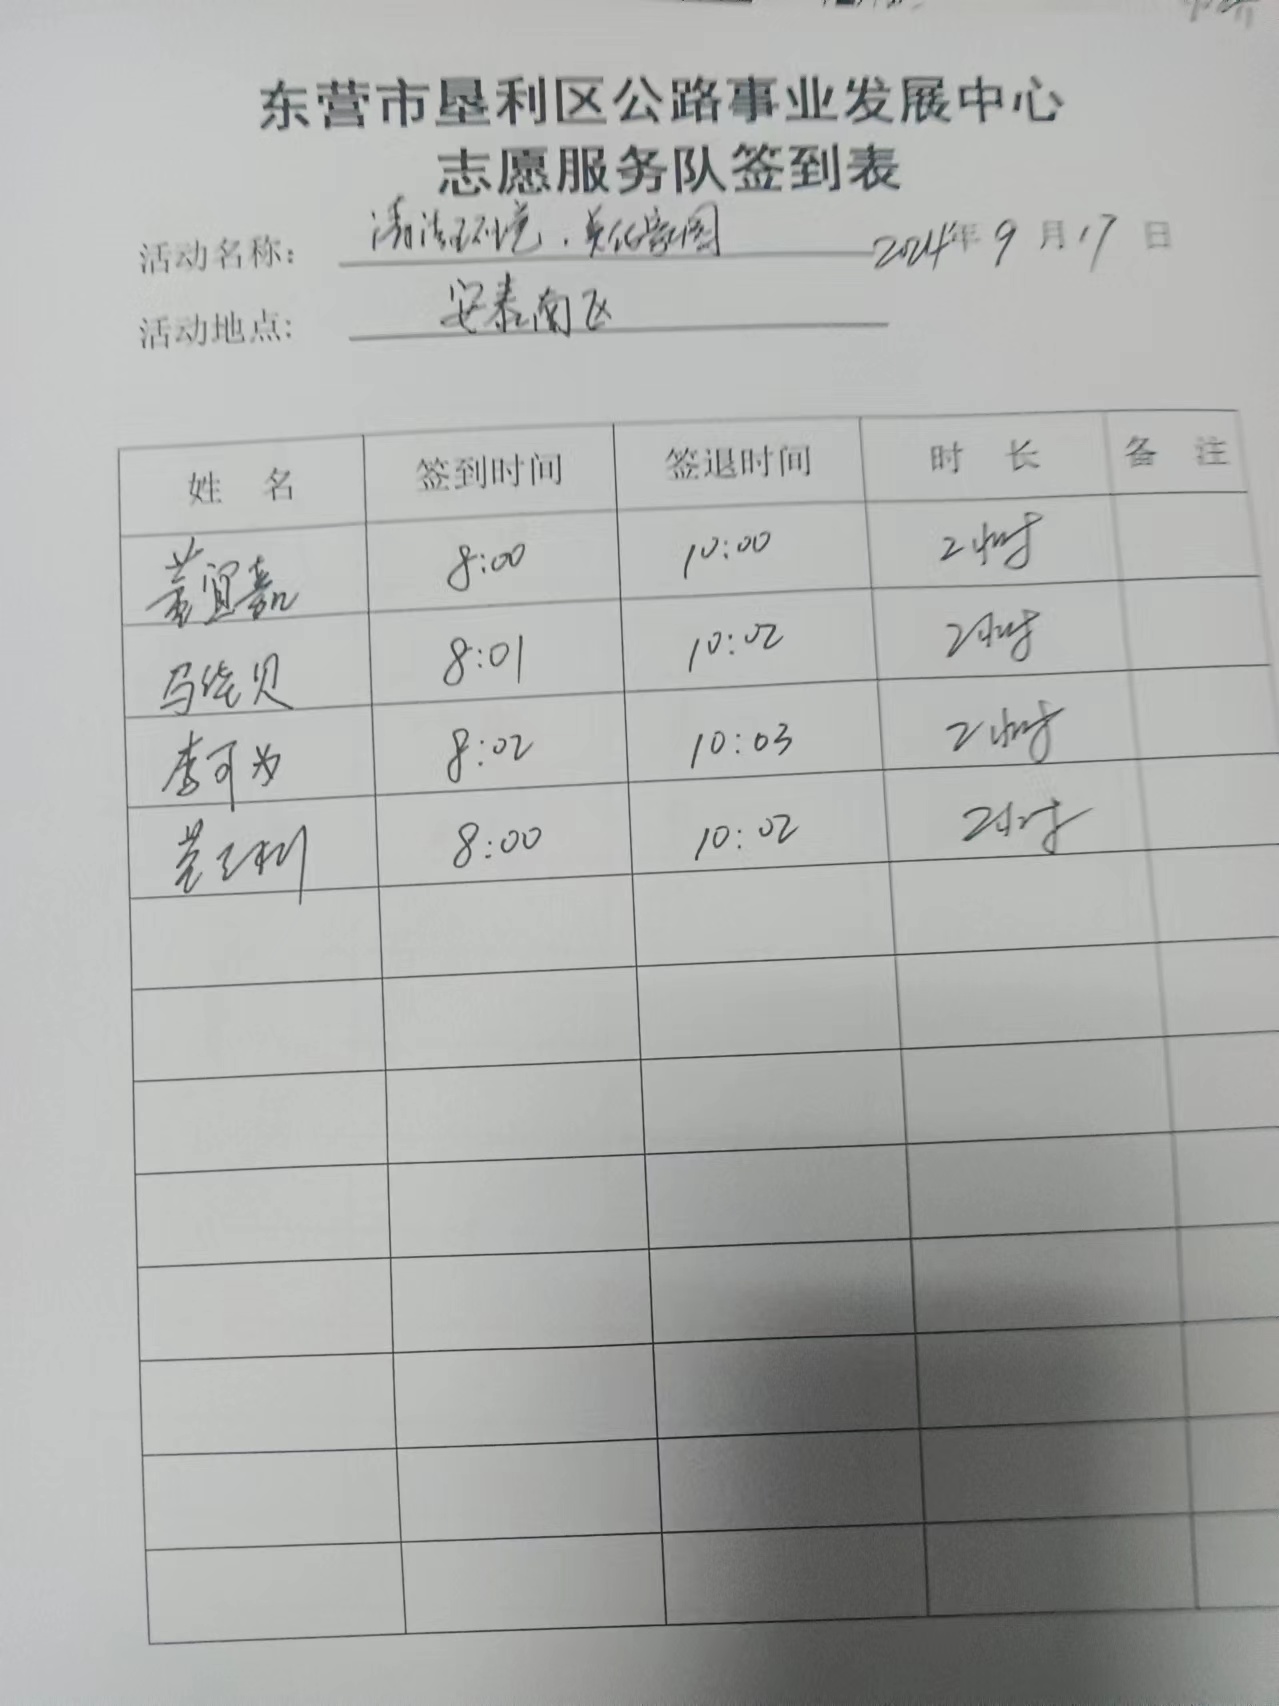 东营市垦利区公路事业发展中心
志愿服务队签到表
活动名称: 清洁环境.美化家园 2024年9月17日
活动地点: 安泰南区
姓 名 签到时间 签退时间 时 长 备 注
董宜嘉 8:00 10:00 2小时
马晓贝 8:01 10:02 2小时
李可为 8:02 10:03 2小时
8:00 10:02 2小时